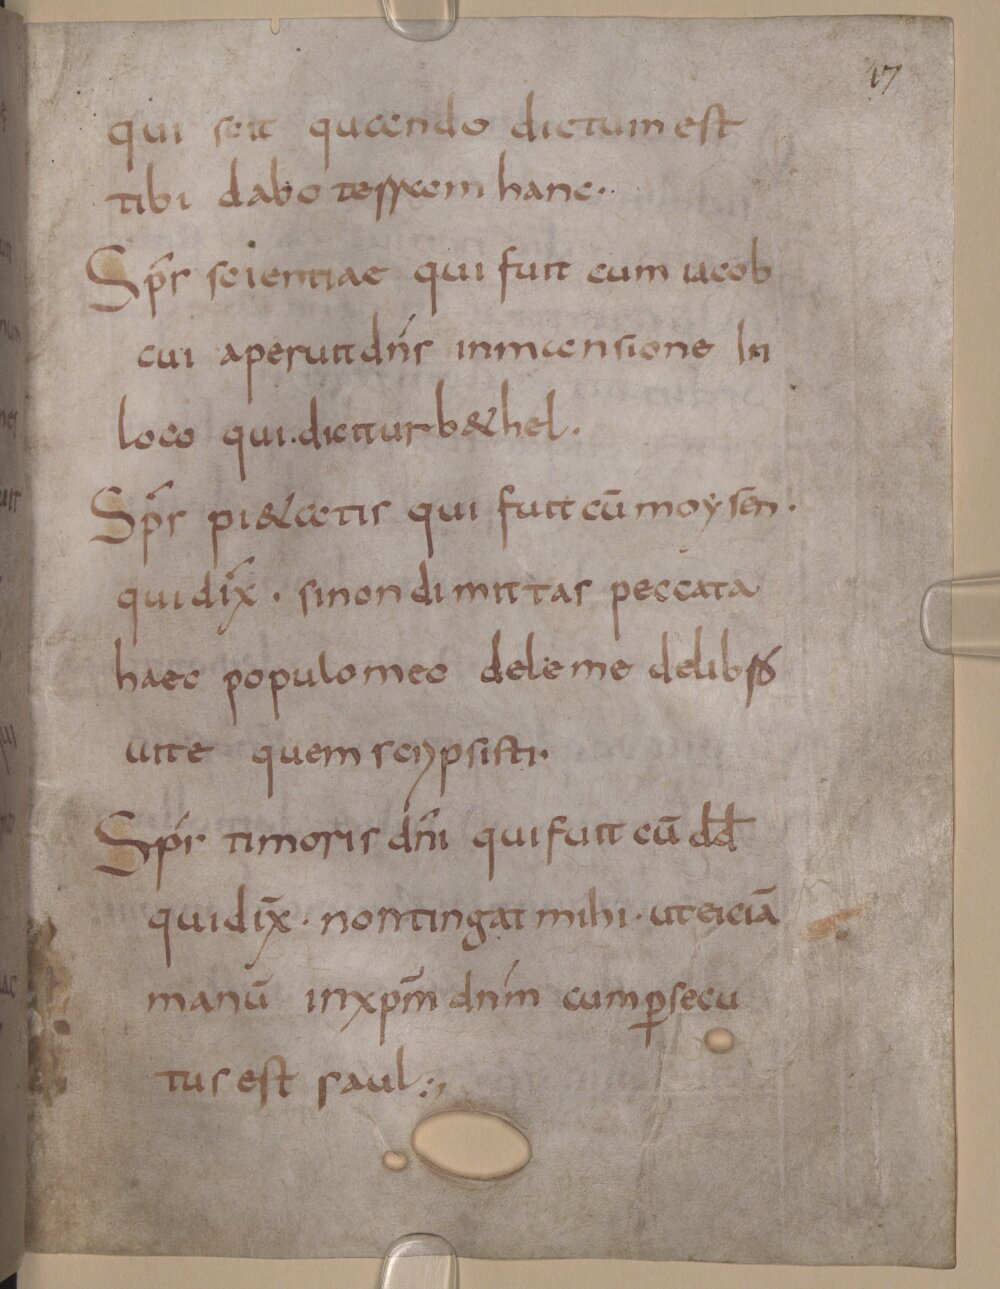 17
qui scit quando dictum est
tibi dabo terram hanc.
Sp̄s scientiae qui fuit cum iacob
cui aperuit dn̄s inmansione In
loco qui.dicitur b&hel.
Sp̄s pi&atis qui fuit cū moysen.
qui dix̄ . si non dimittas peccata
haec populo meo dele me de lib
uite quem scripsisti.
Sp̄s timoris dn̄i qui fuit cū dd̄
qui dix̄ . non tingat mihi . ut eiciā
manū in xp̄m dn̄m cum ꝑsecu
tus est saul:,